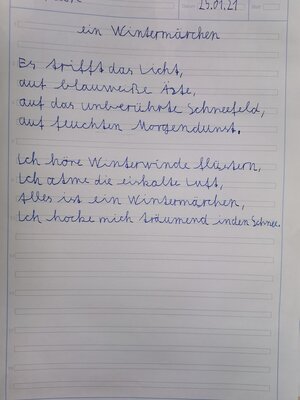 Datum 25.01.21
ein Wintermärchen
Es trifft das Licht,
auf blauweiße Äste,
auf das unberührte Schneefeld,
auf feuchten Morgendunst.
Ich höre Winterwinde flüstern,
Ich atme die eiskalte Luft,
Alles ist ein Wintermärchen,
Ich hocke mich träumend in den Schnee.